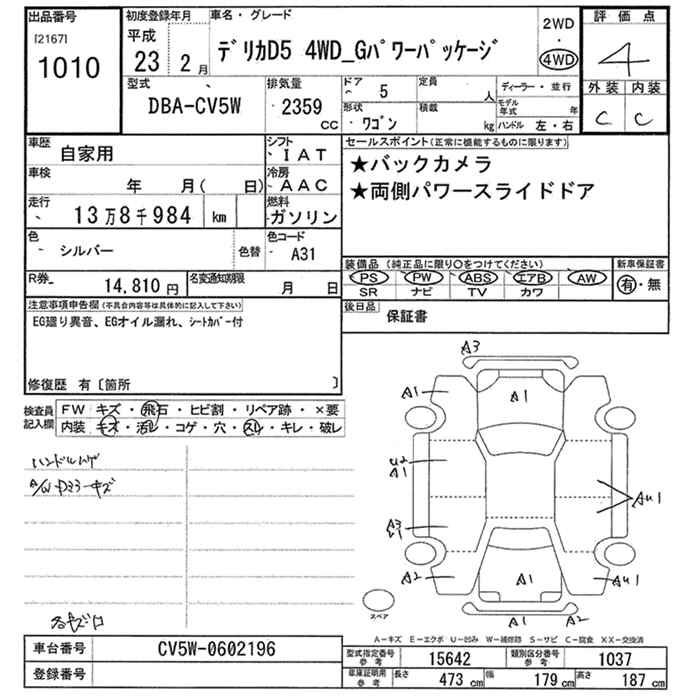 出品番号
[2167]
1010
初度登録年月
平成
23年 2月
車名・グレード
デリカD5 4WD_Gパワーパッケージ
2WD
4WD
評価点
4
外装 内装
C C
型式
DBA-CV5W
排気量
2359
CC
ドア
5
定員
人
形状
ワゴン
積載
kg
ディーラー・並行
モデル年式
年
ハンドル 左・右
車歴
自家用
シフト
IAT
車検
年 月( 日)
冷房
AAC
走行
13万8千984 km
燃料
ガソリン
色
シルバー
色替
色コード
A31
R券
14,810円
名変通知期限
月 日
セールスポイント(正常に機能するものに限ります)
★バックカメラ
★両側パワースライドドア
装備品(純正品に限り○をつけてください)
PS PW ABS エアB AW
SR ナビ TV カワ
新車保証書
有・無
後日品
保証書
注意事項申告欄(不具合内容等は具体的に記入して下さい)
EG廻り異音、EGオイル漏れ、シートカバー付
修復歴 有〔箇所 〕
検査員記入欄
FW キズ・飛石・ヒビ割・リペア跡・×要
内装 キズ・汚レ・コゲ・穴・スレ・キレ・破レ
A3
A1
A1
U2
A1
AU1
A3
A2
A1
AU1
A1
A2
スペア
A−キズ E−エクボ U−凹み W−補修跡 S−サビ C−腐食 XX−交換済
車台番号
CV5W-0602196
登録番号
型式指定番号
参考
15642
類別区分番号
参考
1037
車庫証明用
参考
長さ
473 cm
幅
179 cm
高さ
187 cm